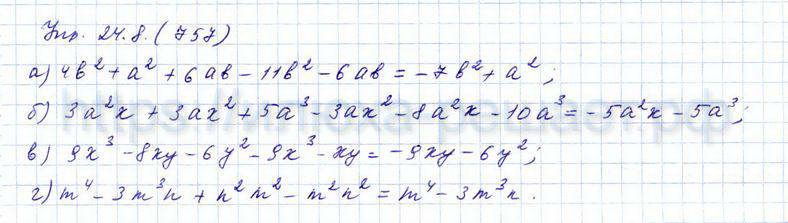 Упр. 24.8. (757)
а) 4b² + a² + 6ab - 11b² - 6ab = -7b² + a²;
б) 3a²x + 3ax² + 5a³ - 3ax² - 8a²x - 10a³ = -5a²x - 5a³;
в) 9x³ - 8xy - 6y² - 9x³ - xy = -9xy - 6y²;
г) m⁴ - 3m³n + n²m² - m²n² = m⁴ - 3m³n.